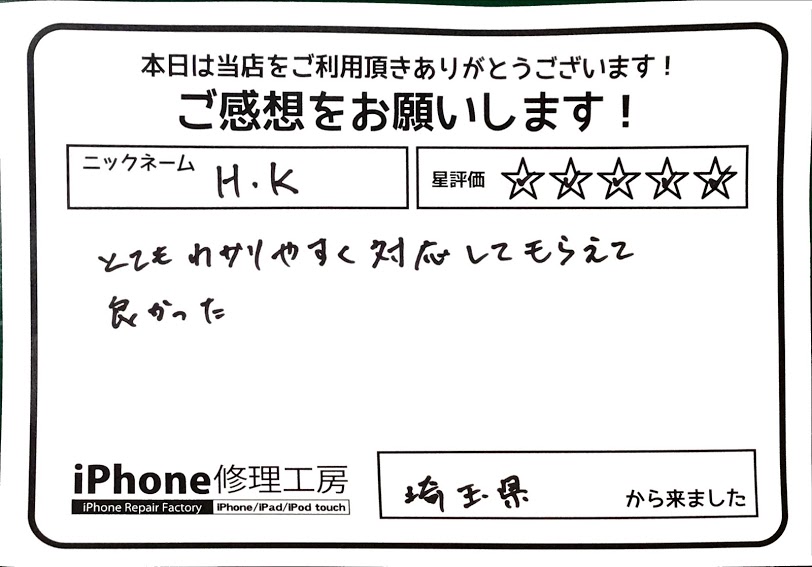 本日は当店をご利用頂きありがとうございます！
ご感想をお願いします！
ニックネーム H.K 星評価
とてもわかりやすく対応してもらえて
良かった
iPhone修理工房
iPhone Repair Factory iPhone/iPad/iPod touch
埼玉県 から来ました